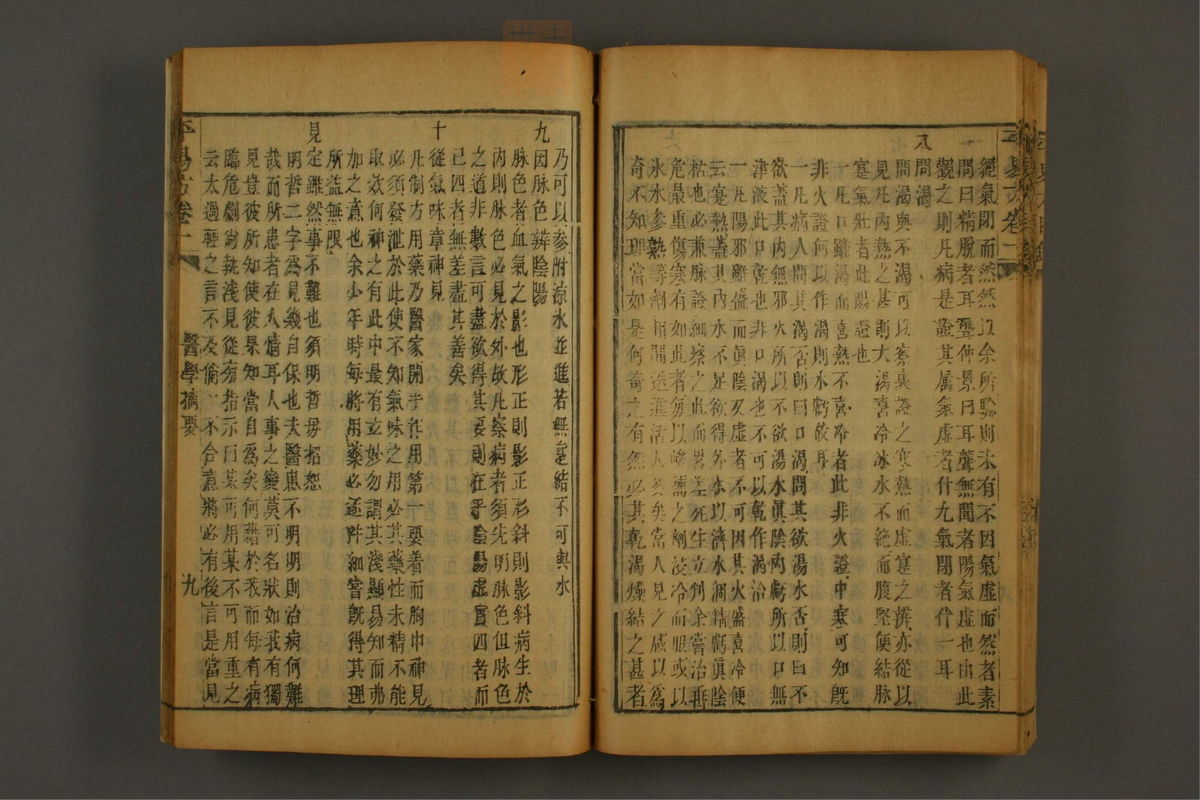 經氣閉而然然以余所驗則未有不因氣虛而然者素
問曰精脫者耳聾使景曰耳聾無聞者陽氣虛也由此
觀之則凡病是證其屬氣虛者什九氣閉者什一耳
八
問渴
問渴與不渴可以察裏證之寒熱而虛實之辨亦從以
見凡內熱之甚則大渴喜冷冰水不絕而腹堅便結脉
實氣壯者此陽證也
一凡口雖渴而喜熱不喜冷者此非火證中寒可知既
非火證何以作渴則水虧故耳
一凡病人問其渴否則曰口渴問其欲湯水否則曰不
欲蓋其內無邪火所以不欲湯水眞陰內虧所以口無
津液此口乾也非口渴也不可以乾作渴治
一凡陽邪雖盛而眞陰又虛者不可因其火盛喜冷便
云實熱蓋其內水不足欲得外水以濟水涸精虧眞陰
枯也必兼脉證細察之此而畧差死生立判余嘗治垂
危最重傷寒有如此者每以峻補之劑浸冷而服或以
冰水參熟等劑相間送進活人多矣常人見之咸以爲
奇不知理當如是何奇之有然必其乾渴燥結之甚者
乃可以參附凉水並進若無實結不可與水
九
因脉色辨陰陽
脉色者血氣之影也形正則影正形斜則影斜病生於
內則脉色必見於外故凡察病者須先明脉色但脉色
之道非數言可盡欲得其要則在乎陰陽虛實四者而
已四者無差盡其善矣
十
從氣味章神見
凡制方用藥乃醫家開手作用第一要着而胸中神見
必須發泄於此使不知氣味之用必其藥性未精不能
取效何神之有此中最有玄妙勿謂其淺顯易知而弗
加之意也余少年時每將用藥必逐件細嘗旣得其理
所益無限
見定雖然事不難也須明哲毋招怨
明哲二字爲見幾自保也夫醫患不明明則治病何難
哉而所患者在人情耳人事之變莫可名狀如我有獨
見豈彼所知使彼果知當自爲矣何藉於我而每有病
臨危劇尙執淺見從旁指示曰某可用某不可用重之
云太過輕之言不及倘一不合意將必有後言是當見
醫學摘要
九
平易方卷一